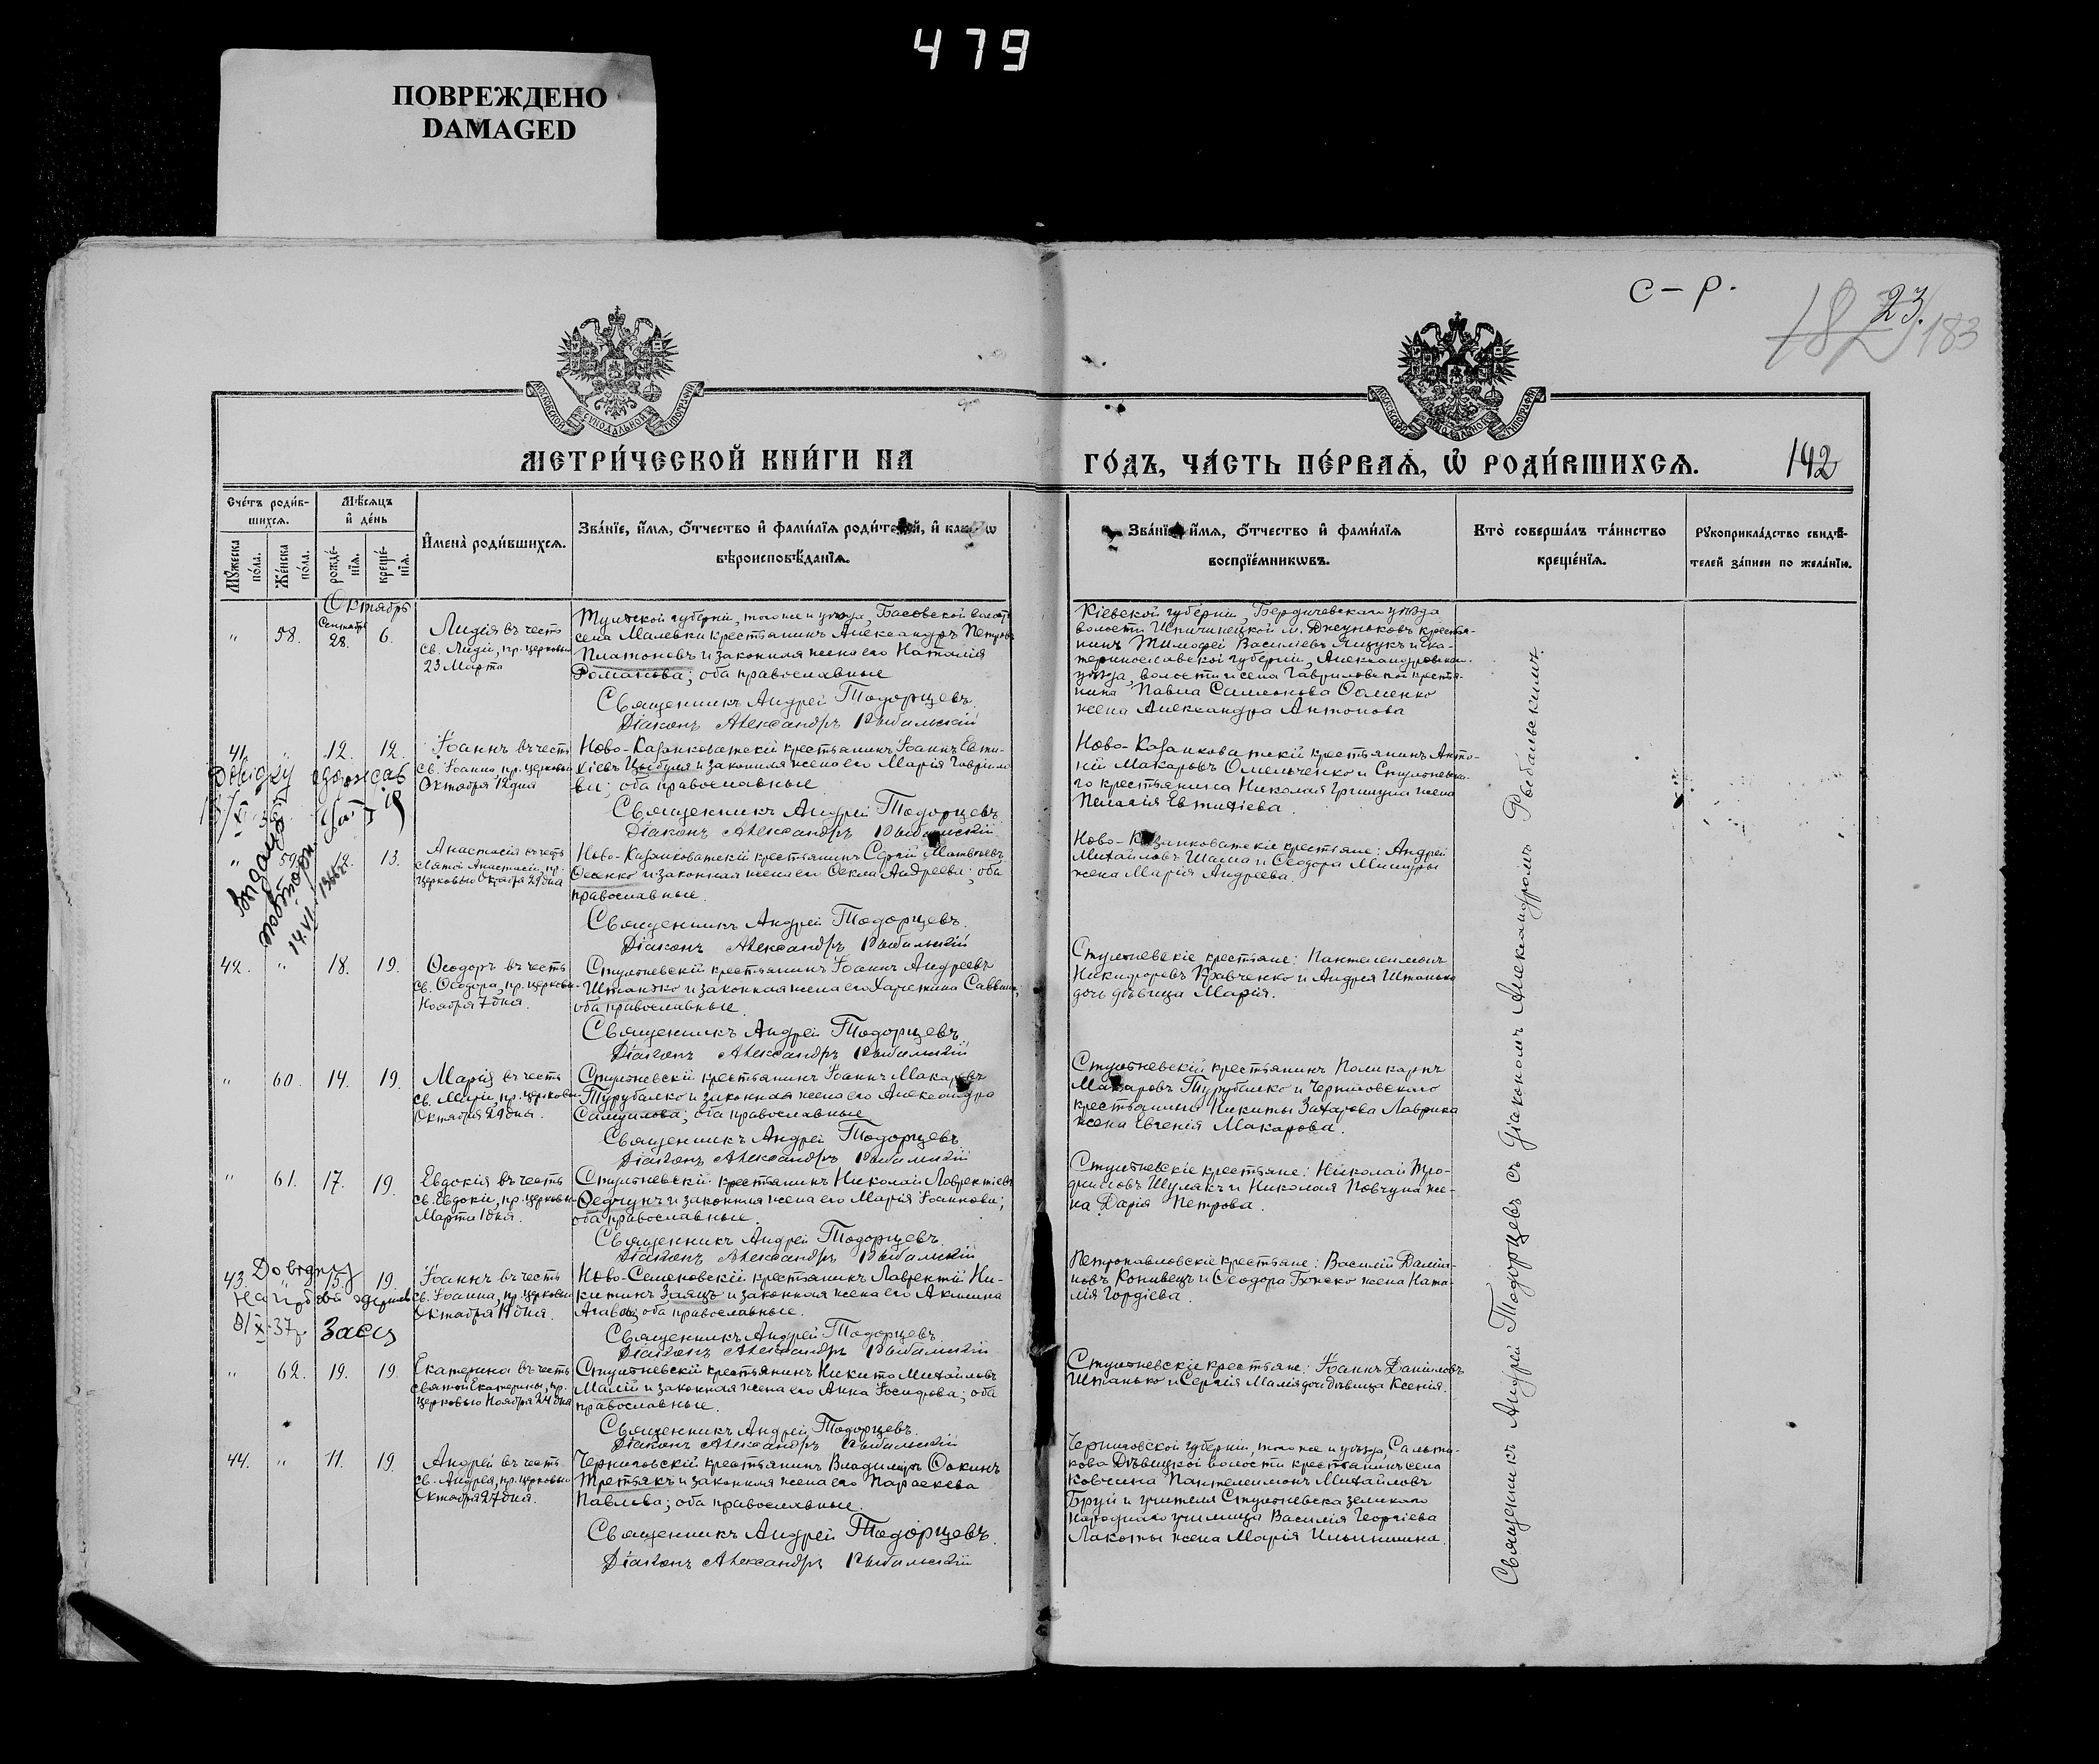 479
ПОВРЕЖДЕНО
DAMAGED
с-р.
182
23.
183
МОСКОВСКОЙ СѴНОДАЛЬНОЙ ТИПОГРАФІИ
МОСКОВСКОЙ СѴНОДАЛЬНОЙ ТИПОГРАФІИ
МЕТРИ́ЧЕСКОЙ КНИ́ГИ НА
ГО́ДЪ, ЧА́СТЬ ПЕ́РВАѦ, Ѡ҆ РОДИ́ВШИХСѦ.
142
Сче́тъ роди́в-
шихсѧ.
Му́жеска
по́ла.
Же́нска
по́ла.
Мѣ́сѧцъ
и҆ де́нь
рожде́-
нїѧ.
креще́-
нїѧ.
И҆мена̀ роди́вшихсѧ.
Зва́нїе, и҆́мѧ, ѻ҆́тчество и҆ фами́лїѧ роди́телей, и҆ како́гѡ
вѣроисповѣ́данїѧ.
Зва́нїе, и҆́мѧ, ѻ҆́тчество и҆ фами́лїѧ
воспрїе́мникѡвъ.
Кто̀ соверша́лъ та́инство
креще́нїѧ.
Рꙋкоприкла́дство свидѣ́-
телей за́писи по жела́нїю.
Октябрь
" 58. Сентября 28. 6.
Лидія въ честь
св. Лидіи, пр. церковью
23 Марта
Тульской губерніи, того же и уѣзда, Басовской волости
села Малевки крестьянинъ Александръ Петровъ
Платоновъ и законная жена его Наталія
Романова; оба православные
Священникъ Андрей Тодорцевъ.
Діаконъ Александръ Рыбальскій
Кіевской губерніи, Бердичевскаго уѣзда
волости Шпичинецкой м. Днзуньковъ крестья-
нинъ Тимофей Васильевъ Яцукъ и Ека-
теринославской губерніи, Александровскаго
уѣзда, волости и села Гавриловки крестья-
нина Павла Симеонова
жена Александра Антонова
41. " 12. 12.
Іоаннъ въ честь
св. Іоанна, пр. церковью
Октября 12 дня
Ново-Казанковатскій крестьянинъ Іоаннъ Евти-
хіевъ Цыбуля и законная жена его Марія Гаврило-
ва; оба православные
Священникъ Андрей Тодорцевъ.
Діаконъ Александръ Рыбальскій
Ново-Казанковатскій крестьянинъ Анто-
ній Макаровъ Омельченко и Стулневска-
го крестьянина Николая Грищуна жена
Пелагія Евтихіева.
Довідку одержав
" 59. 12. 13.
Анастасія въ честь
святой Анастасіи, пр.
церковью Октября 29 дня
Ново-Казанковатскій крестьянинъ Сергій Матвѣевъ
Осенко и законная жена его Ѳекла Андреева; оба
православные.
Священникъ Андрей Тодорцевъ.
Діаконъ Александръ Рыбальскій
Ново-Казанковатскіе крестьяне: Андрей
Михайловъ Шаша и Ѳеодора Мишуры
жена Марія Андреева.
видано
повторн.
14.VI.
42. " 18. 19.
Ѳеодоръ въ честь
св. Ѳеодора, пр. церковью
Ноября 7 дня.
Стулневскій крестьянинъ Іоаннъ Андреевъ
Штанько и законная жена его Харитина Саввина,
оба православные.
Священникъ Андрей Тодорцевъ.
Діаконъ Александръ Рыбальскій
Стулневскіе крестьяне: Пантелеимонъ
Никифоровъ Кравченко и Андрея Штанько
дочь дѣвица Марія.
" 60. 14. 19.
Марія въ честь
св. Маріи, пр. церковью
Октября 29 дня.
Стулневскій крестьянинъ Іоаннъ Макаровъ
Турубалко и законная жена его Александра
Самуилова; оба православные
Священникъ Андрей Тодорцевъ.
Діаконъ Александръ Рыбальскій
Стулневскій крестьянинъ Поликарпъ
Макаровъ Турубалко и Черниговскаго
крестьянина Никиты Захарова Лаврика
жена Евгенія Макарова.
" 61. 17. 19.
Евдокія въ честь
св. Евдокіи, пр. церковью
Марта 1 дня.
Стулневскій крестьянинъ Николай Лаврентіевъ
Ѳедчунъ и законная жена его Марія Іоаннова;
оба православные.
Священникъ Андрей Тодорцевъ.
Діаконъ Александръ Рыбальскій
Стулневскіе крестьяне: Николай Тро-
фимовъ Шулякъ и Николая Повчуна же-
на Дарія Петрова.
Довідку
43. " 15. 19.
Заєц
Іоаннъ въ честь
св. Іоанна, пр. церковью
Октября 19 дня.
Ново-Семеновскій крестьянинъ Лаврентій Ни-
китинъ Заяцъ и законная жена его Акилина
оба православные.
Священникъ Андрей Тодорцевъ.
Діаконъ Александръ Рыбальскій
Петропавловскіе крестьяне: Василій Даміа-
новъ Конивецъ и Ѳеодора жена Ната-
лія Гордіева.
" 62. 19. 19.
Екатерина въ честь
святой Екатерины, пр.
церковью Ноября 24 дня
Стулневскій крестьянинъ Никита Михайловъ
Малій и законная жена его Анна Іосифова; оба
православные.
Священникъ Андрей Тодорцевъ.
Діаконъ Александръ Рыбальскій
Стулневскіе крестьяне: Іоаннъ Даніиловъ
Штанько и Сергія Малія дочь дѣвица Ксенія.
44. " 11. 19.
Андрей въ честь
св. Андрея, пр. церковью
Октября 27 дня.
Черниговскій крестьянинъ Владиміръ Ѳокинъ
Третьякъ и законная жена его Параскева
Павлова; оба православные.
Священникъ Андрей Тодорцевъ.
Діаконъ Александръ Рыбальскій
Черниговской губерніи, того же и уѣзда, Салты-
кова Дѣвицкой волости крестьянинъ села
Ковчина Пантелеимонъ Михайловъ
Бруй и учителя Стулневска земскаго
народнаго училища Василія Георгіева
Лакоты жена Марія Ильинична.
Священникъ Андрей Тодорцевъ съ діакономъ Александромъ Рыбальскимъ.